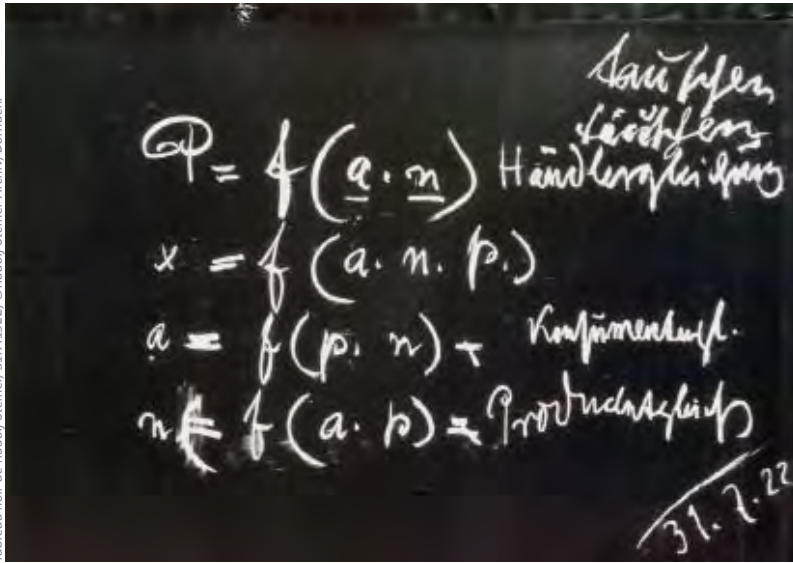 tauschen
täuschen
P = f (a · n) Händlergleichung
x = f (a. n. p.)
a = f (p. n) = Konsumentengl.
n = f (a. p) = Producentengleichg
31. 7. 22